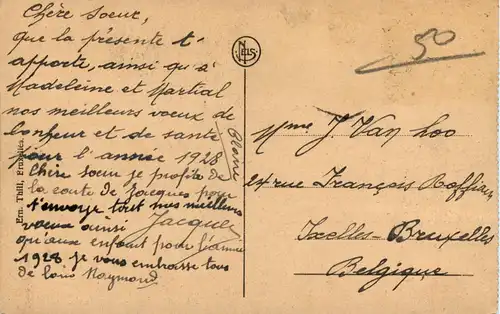 Chère Soeur,
que la présente t'
apporte, ainsi qu'à
Madeleine et Martial
nos meilleurs voeux de
bonheur et de santé
pour l'année 1928
Chère soeur je profite de
la carte de Jacques pour
t'envoyer tout mes meilleurs
voeux ainsi Jacques
qu'aux enfant pour l'année
1928 je vous embrasse tous
de loin Raymond
Ern. Thill, Bruxelles
NELS
50
Mme J Van Loo
24 rue François Roffiaen
Ixelles-Bruxelles
Belgique